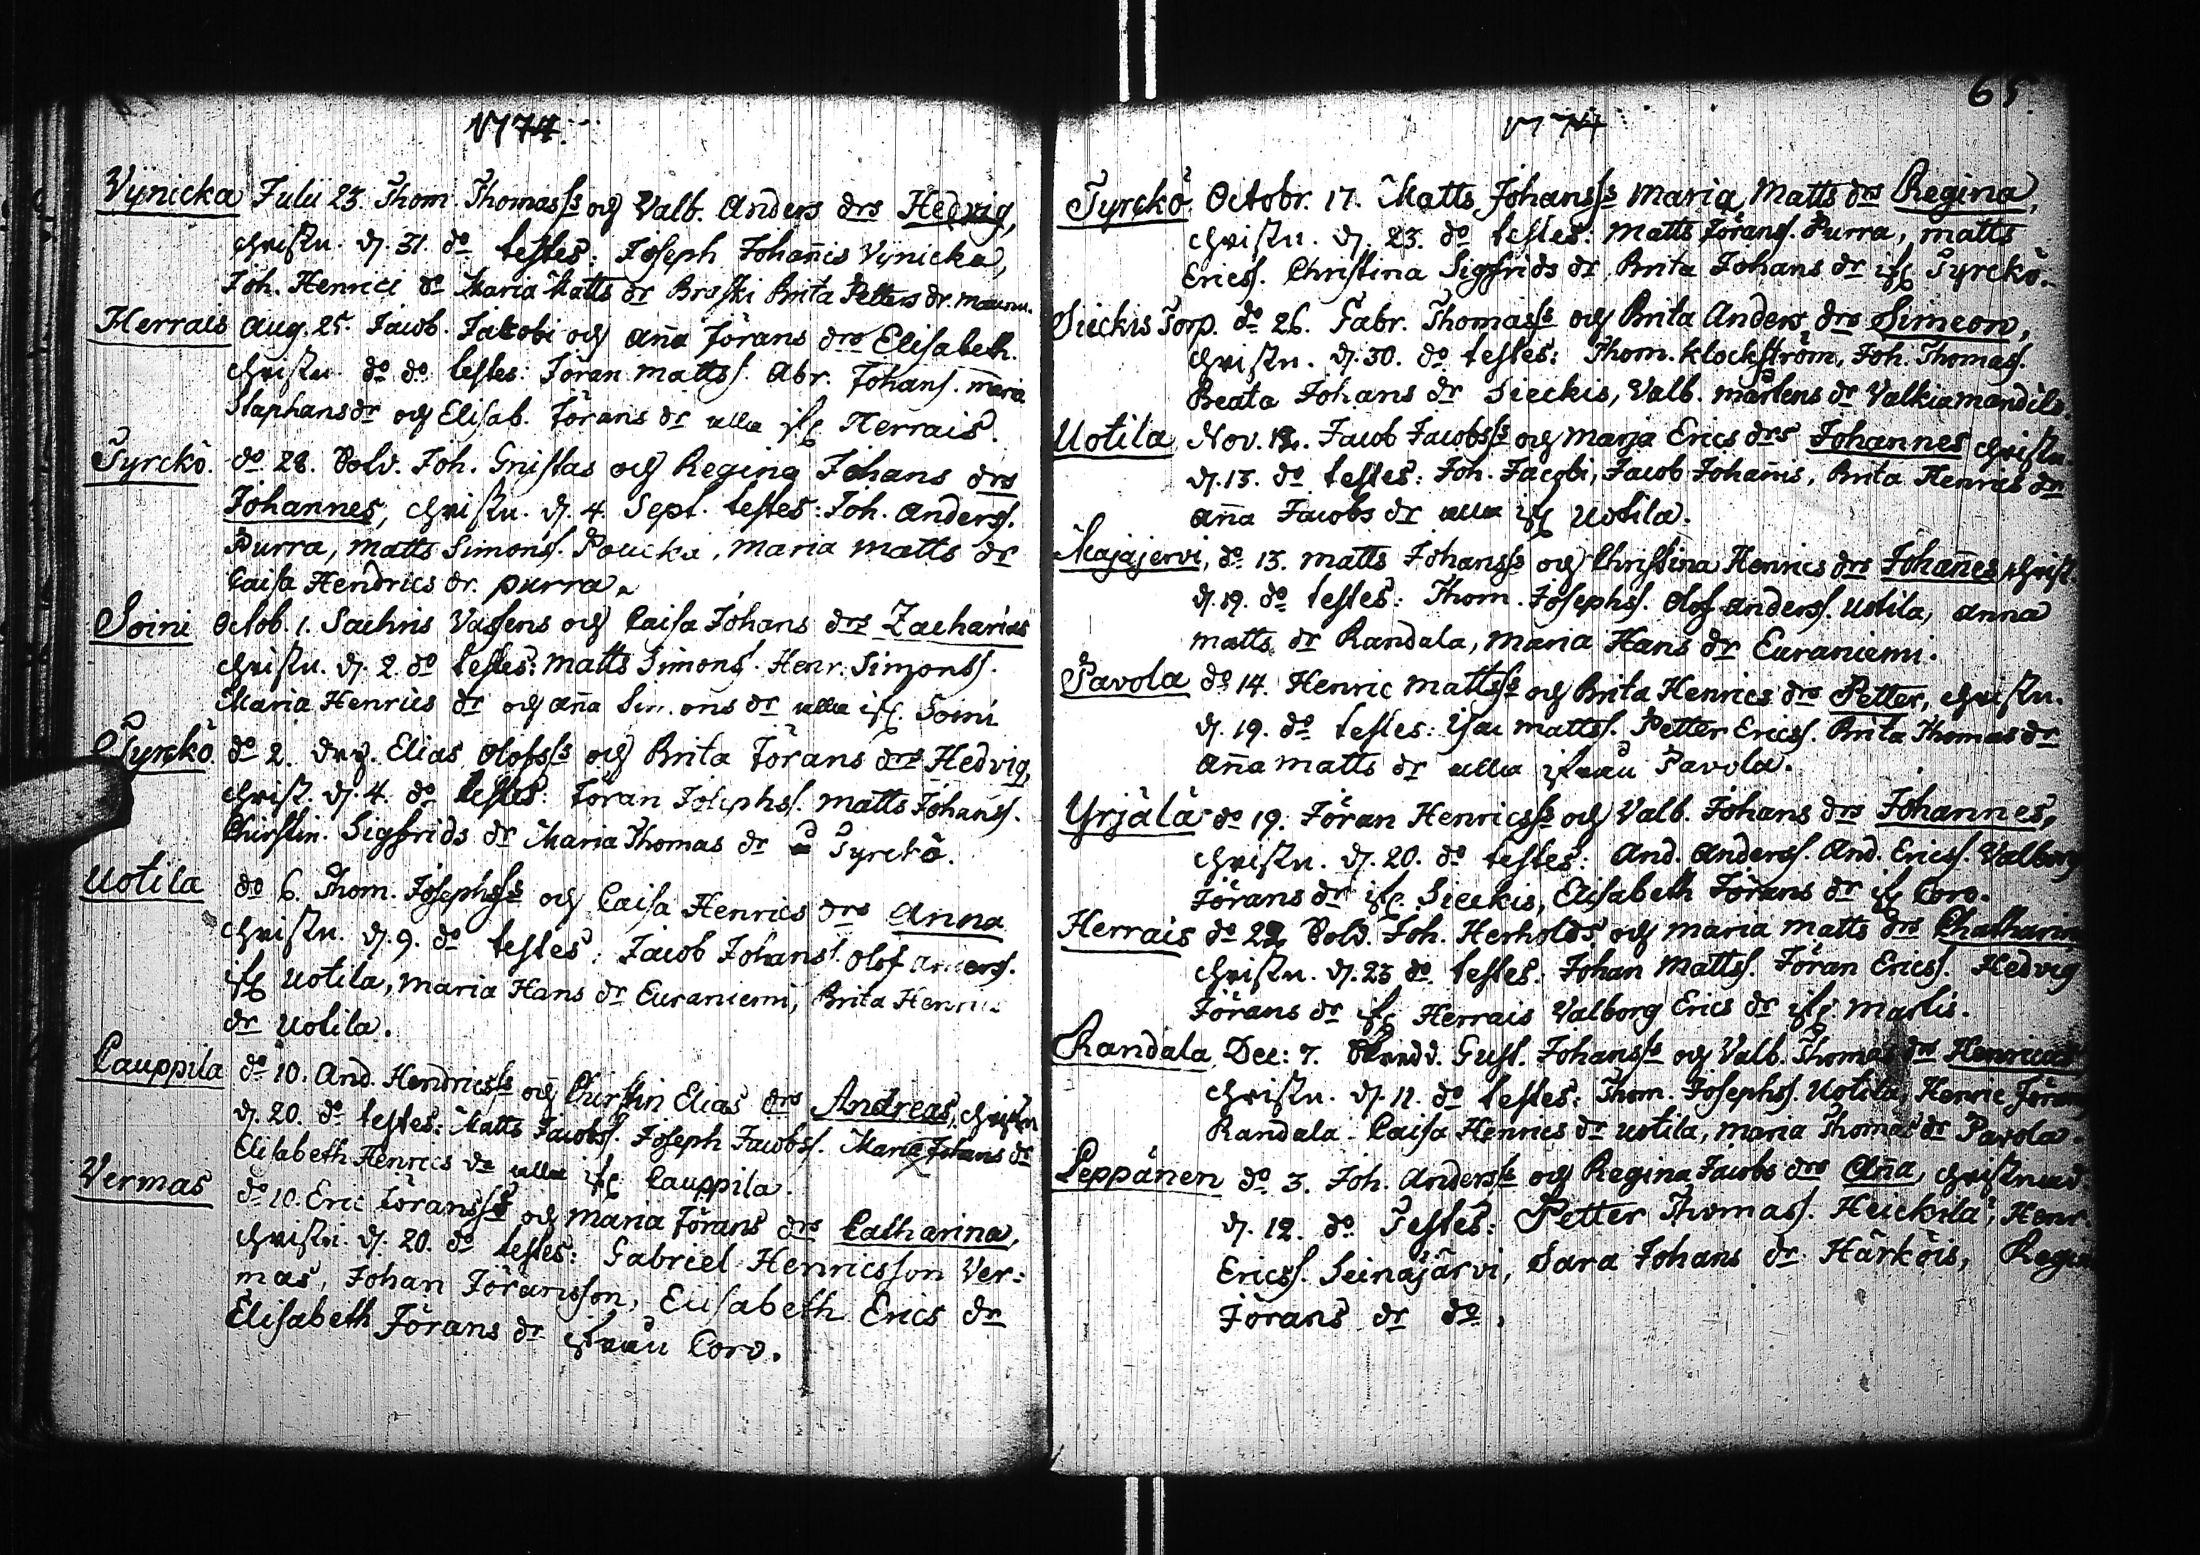 1774.
Vÿnicka Julii 23. Thom. Thomasss och Valb. Anders drs Hedvig,
christn. d. 31. do testes: Joseph Johañis Vÿnicka,
Joh. Henrici do Maria Matts dr Braski Brita Petters dr.
Herrais Aug. 25. Jacob. Jakobi och Aña Jörans drs Elisabeth.
christn. do do testes: Jöran Mattss. Abr. Johans. Maria
Staphansdr och Elisab. Jörans dr alla ifr. Herrais.
Tyrckö. do 28. Sold. Joh. Gnistas och Regina Johans drs
Johannes, christn. d. 4. Sept. testes: Joh. Anderss.
Purra, Matts Simonss. Poucka, Maria Matts dr
Caisa Hendrics dr. purra.
Soini Octob. 1. Sachris Vassens och Caisa Johans drs Zacharias
christn. d. 2. do testes: Matts Simons. Henr. Simonss.
Maria Henrics dr och Aña Simons dr alla ifr. Soini
Tyrckö. do 2. drg. Elias Olofsss och Brita Jörans drs Hedvig,
christ. d. 4. do testes: Jöran Josephss. Matts Johans.
Christin. Sigfrids dr Maria Thomas dr Tyrckö.
Uotila do 6. Thom. Josephsss och Caisa Henrics drs Anna
christn. d. 9. do testes: Jacob Johans. Olof Anders.
ifr Uotila, Maria Hans dr Euraniemi, Brita Henrics
dr Uotila.
Cauppila do 10. And. Hendricsss och Christin Elias drs Andreas, christn
d. 20. do testes: Matts Jacobss. Joseph Jacobss. Maria Johans dr
Elisabeth Henrics dr alla ifr Cauppila.
Vermas do 10. Eric Göransss och Maria Jörans drs Catharina,
christn. d. 20. do testes: Gabriel Henricsson Ver:
mas, Johan Jöransson, Elisabeth Erics dr
Elisabeth Jörans dr ifrån Coro.
65
1774
Tyrckö Octobr. 17. Matts Johansss Maria Matts drs Regina,
christn. d. 23. do testes: Matts Jörans. Purra, Matts
Ericss. Christina Sigfrids dr, Brita Johans dr ifr Tyrckö.
Sieckis Torp. do 26. Gabr. Thomasss och Brita Anders drs Simeon,
christn. d. 30. do testes: Thom. Klockström, Joh. Thomass.
Beata Johans dr Sieckis, Valb. Mårtens dr Valkiamandila
Uotila Nov. 12. Jacob Jacobsss och Marja Erics drs Johannes christn
d. 13. do testes: Joh. Jacobi, Jacob Johañis, Brita Henrics dr
Aña Jacobs dr alla ifr Uotila.
Majajervi, do 13. Matts Johansss och Christina Henrics drs Johañes christ.
d. 19. do testes: Thom. Josephss. Olof Anderss. Uotila, Anna
Matts dr Randala, Maria Hans dr Euraniemi.
Pavola do 14. Henric Mattsss och Brita Henrics drs Petter, christn.
d. 19. do testes: Isac Mattss. Petter Ericss. Brita Thomas dr
Aña Matts dr alla ifrån Pavola.
Yrjälä do 19. Jöran Henricsss och Valb. Johans drs Johannes,
christn. d. 20. do testes: And. Anderss. And. Ericss. Valborg
Jörans dr ifr. Sieckis, Elisabeth Jörans dr ifr Coro.
Herrais do 22. Sold. Joh. Herholds och Maria Matts drs Chatharin
christn. d. 23 do testes: Johan Mattss. Jöran Ericss. Hedvig
Jörans dr ifr Herrais Valborg Erics dr ifr. Martis.
Randala Dec: 7. Gust. Johansss och Valb. Thomas drs Henricus
christn. d. 11. do testes: Thom. Josephss. Uotila, Henric Jörans
Randala. Caisa Henrics dr Uotila, Maria Thomas dr Pavola.
Peppänen do 3. Joh. Andersss och Regina Jacobs drs Aña, christnad
d. 12. do Testes: Petter Thomass. Heickilä, Henr.
Ericss. Seinäjärvi, Sara Johans dr Härköis, Regin
Jörans dr do.